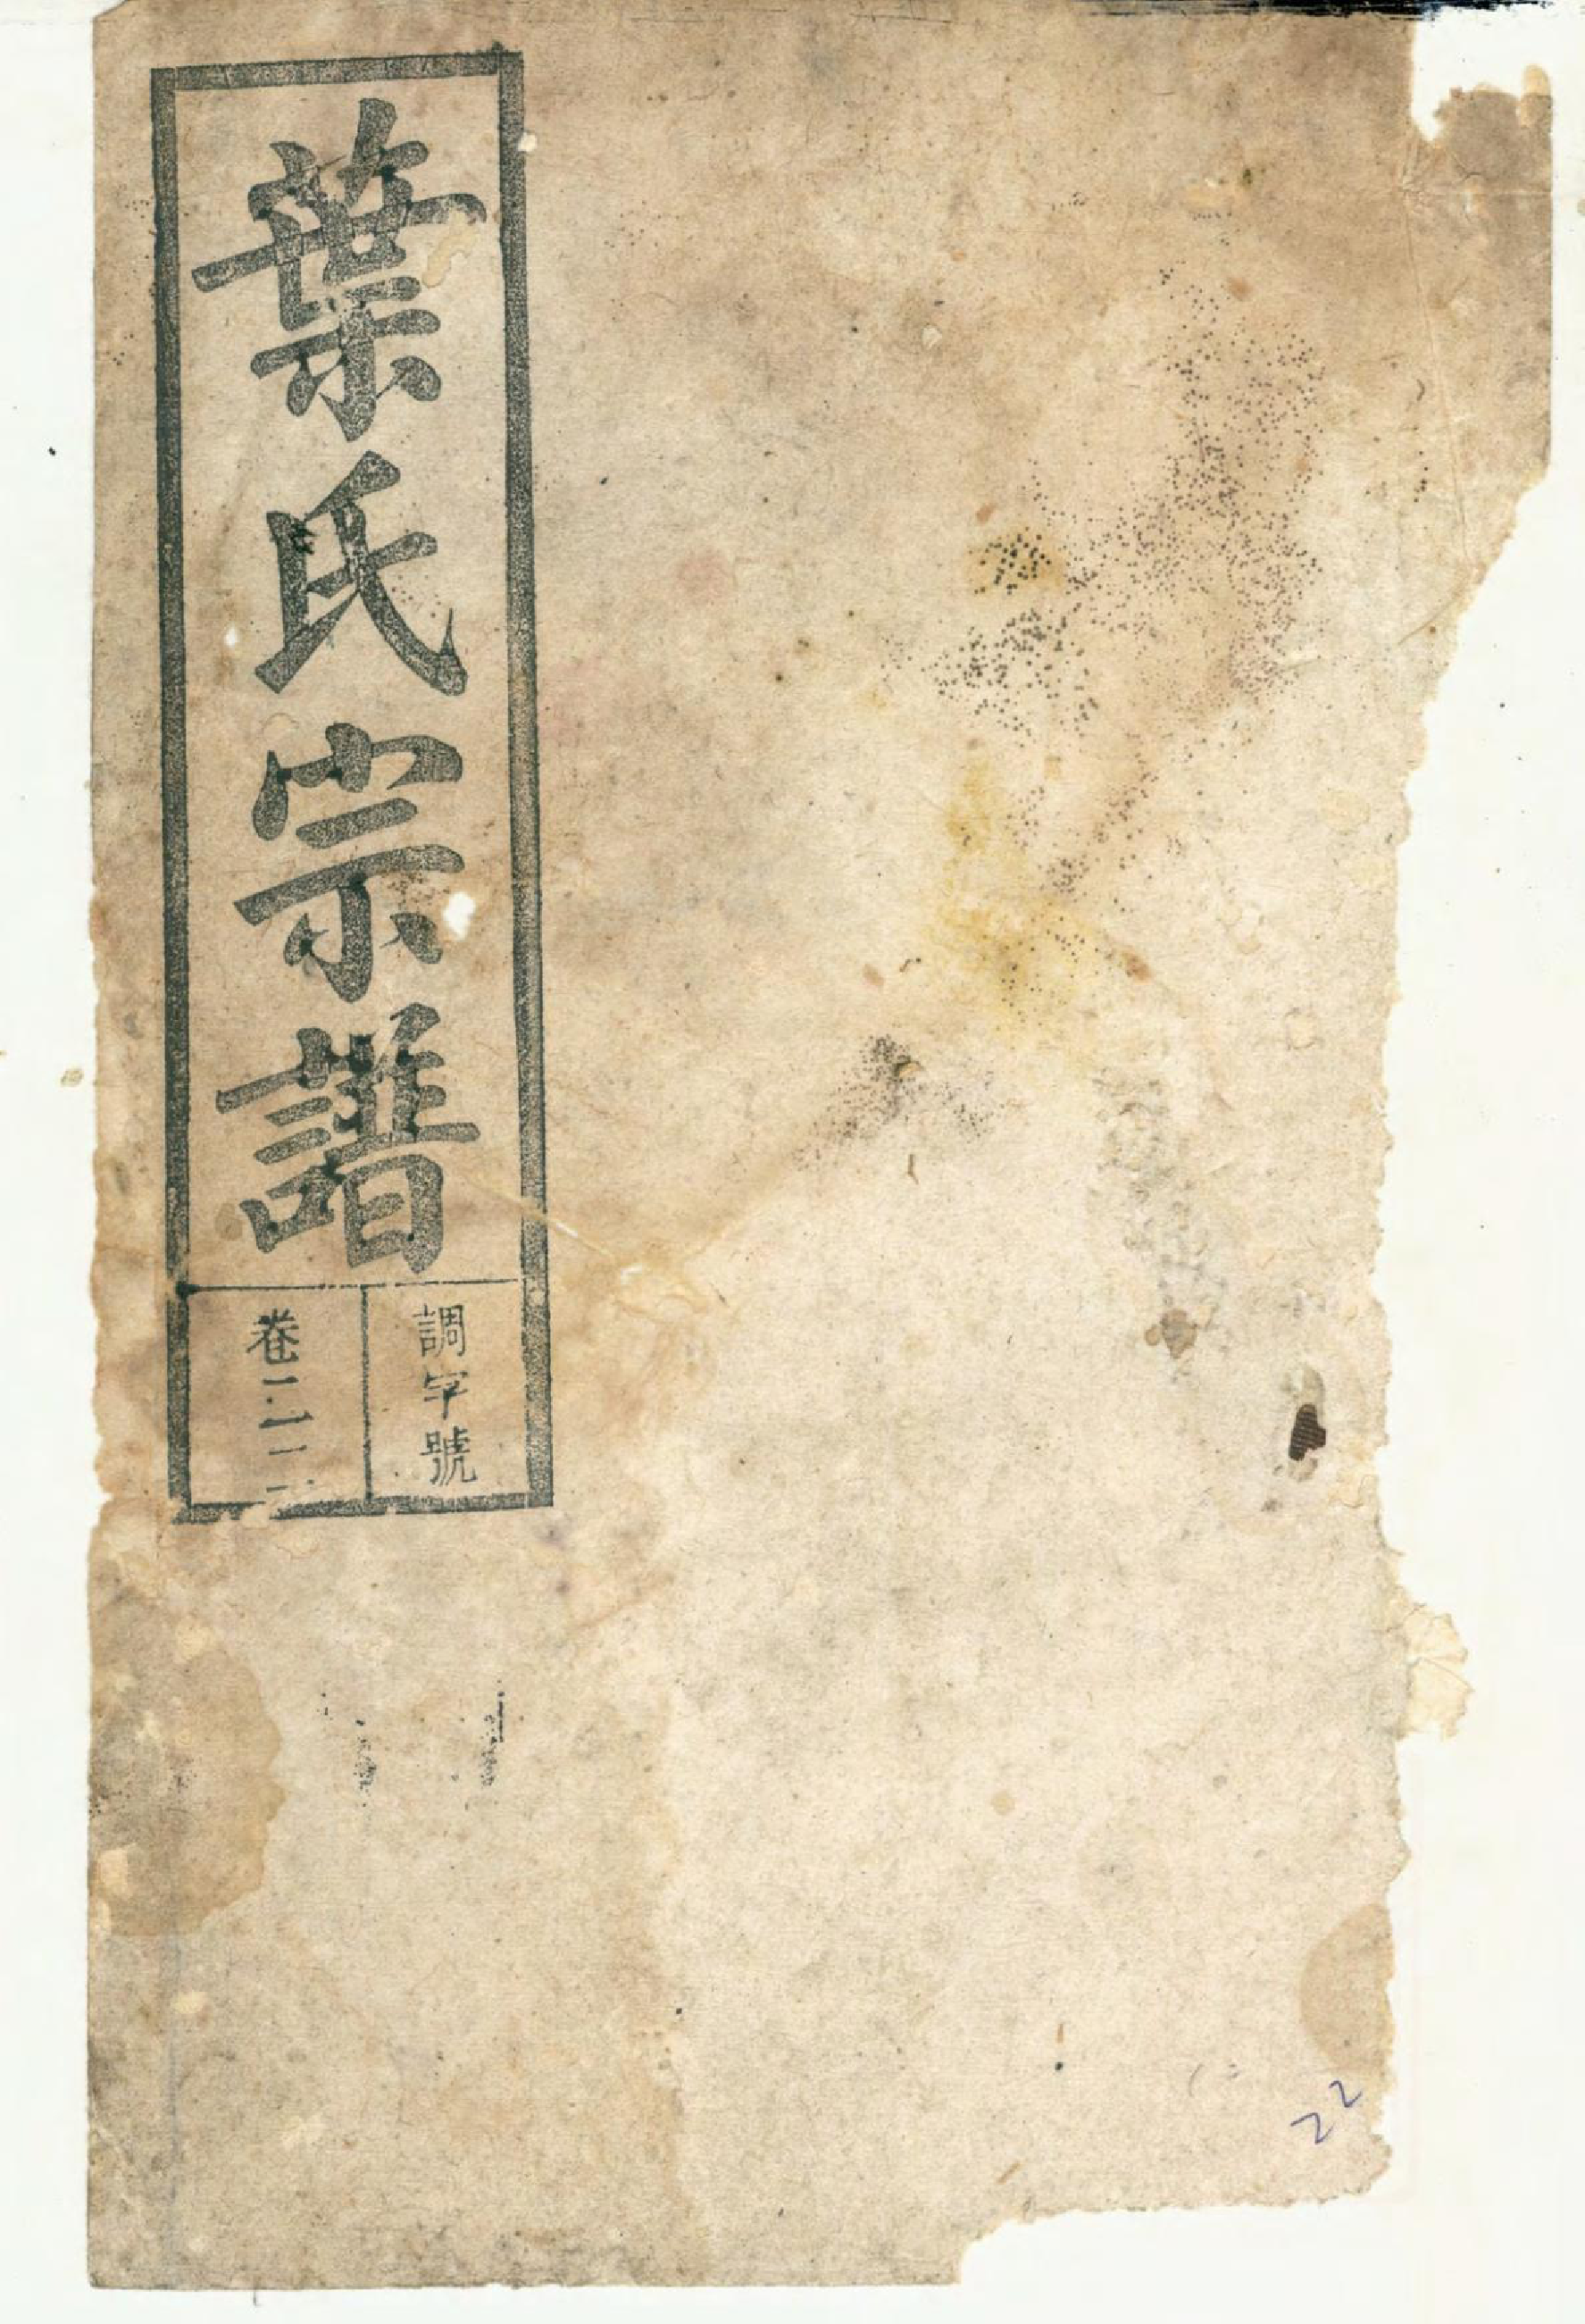 葉氏宗譜
調字號
卷二
22